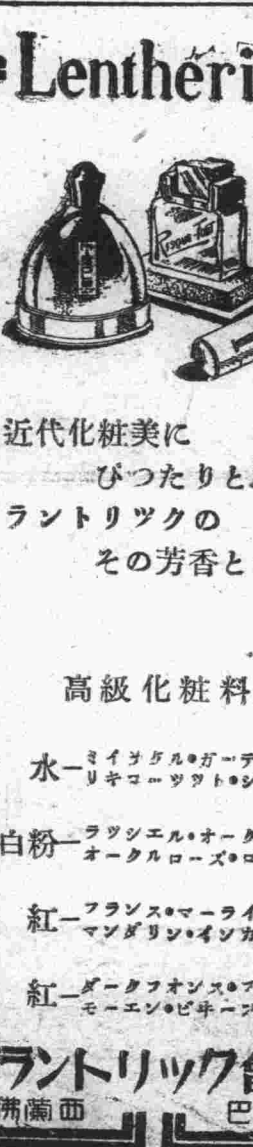 Lentheri
Risque-Tout
近代化粧美に
ぴつたりと
ラントリツクの
その芳香と
高級化粧料
水―ミイサウル・ガーデ
リキコーツツト・シ
白粉―ラツシエル・オーク
オークルローズ・ロ
紅―フランス・マーライ
マンダリン・インカ
紅―ダークフオンス・フ
モーエン・ビギーフ
ラントリック會
佛蘭西
巴